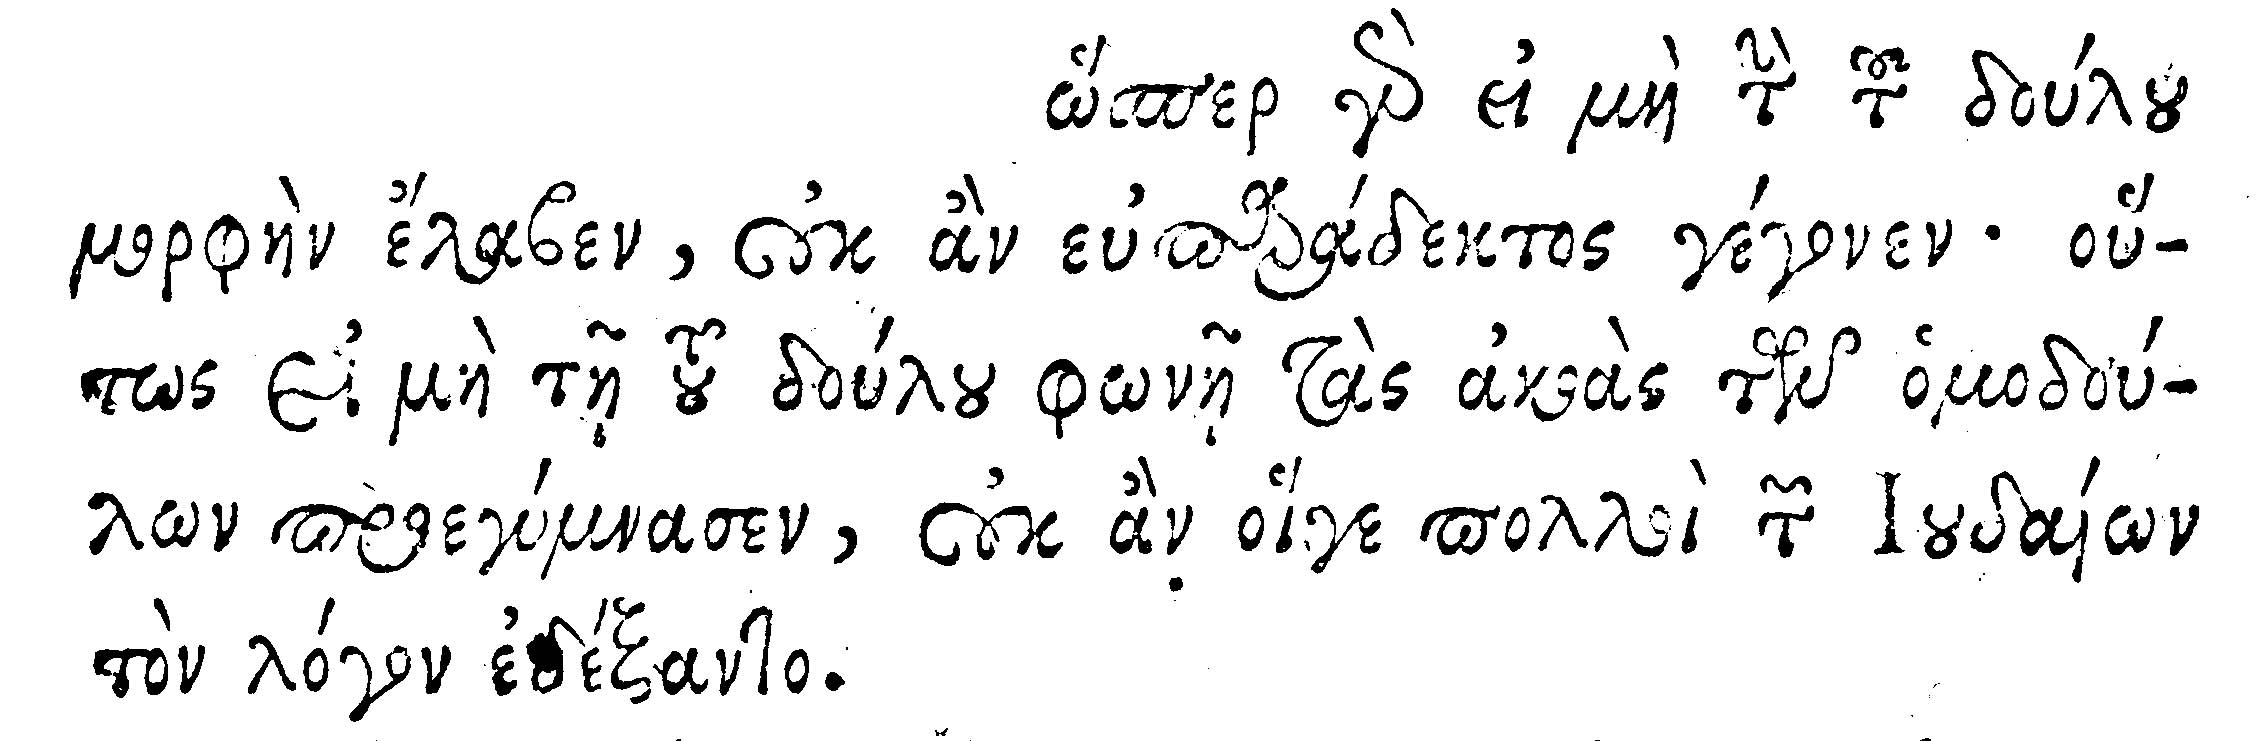 ὥσπερ γὰρ εἰ μὴ τὴν τοῦ δούλου
μορφὴν ἔλαβεν, οὐκ ἂν εὐπαράδεκτος γέγονεν· οὕ-
τως εἰ μὴ τῇ τοῦ δούλου φωνῇ τὰς ἀκοὰς τῶν ὁμοδού-
λων προεγύμνασεν, οὐκ ἂν οἵγε πολλοὶ τῶν Ιουδαίων
τὸν λόγον ἐδέξαντο.